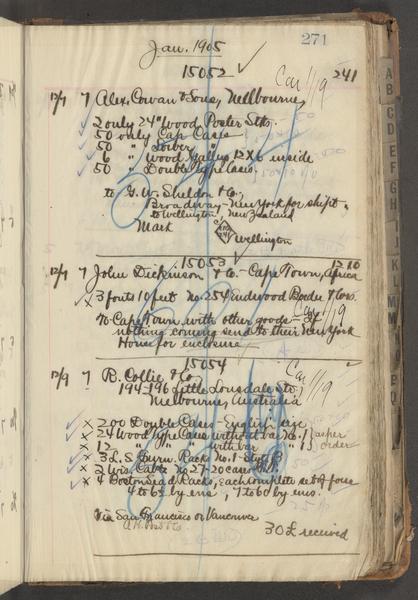 Jan. 1905 271
15052 Car 1/19 241
12/7 7 Alex. Cowan & Sons, Melbourne,
2 only 24" Wood Poster Stks.
50 only Cap Cases
50 " Lower "
6 " Wood Galleys 12x6 inside
50 " Double type Cases
to G. W. Sheldon & Co.
Broadway - New York for shipt.
to Wellington, New Zealand
Mark
241
Wellington
15053 1210
12/7 7 John Dickinson & Co - Cape Town, Africa
x 3 fonts 10 feet No. 254 Endwood Border & Cors.
Car 1/19
To Cape Town with other goods - If
nothing coming send to their New York
House for enclosure
15054
Car 1/19
12/9 7 R. Collie & Co.
194-196 Little Lonsdale St.
Melbourne, Australia
x 200 Double Cases - English size
x 24 Wood type Cases without bar No. 1 Order
x 12 " " " with bar " 1
x 3 L. S. Furn. Racks No. 1 -
x 2 Wis. Cab. No. 27-20 cases
x 4 Boston Lead Racks, each complete set of four
4 to 6 1/2 by ens, 7 to 60 by ems.
Via San Francisco or Vancouver
30 L received
A
B
C
D
E
F
G
H